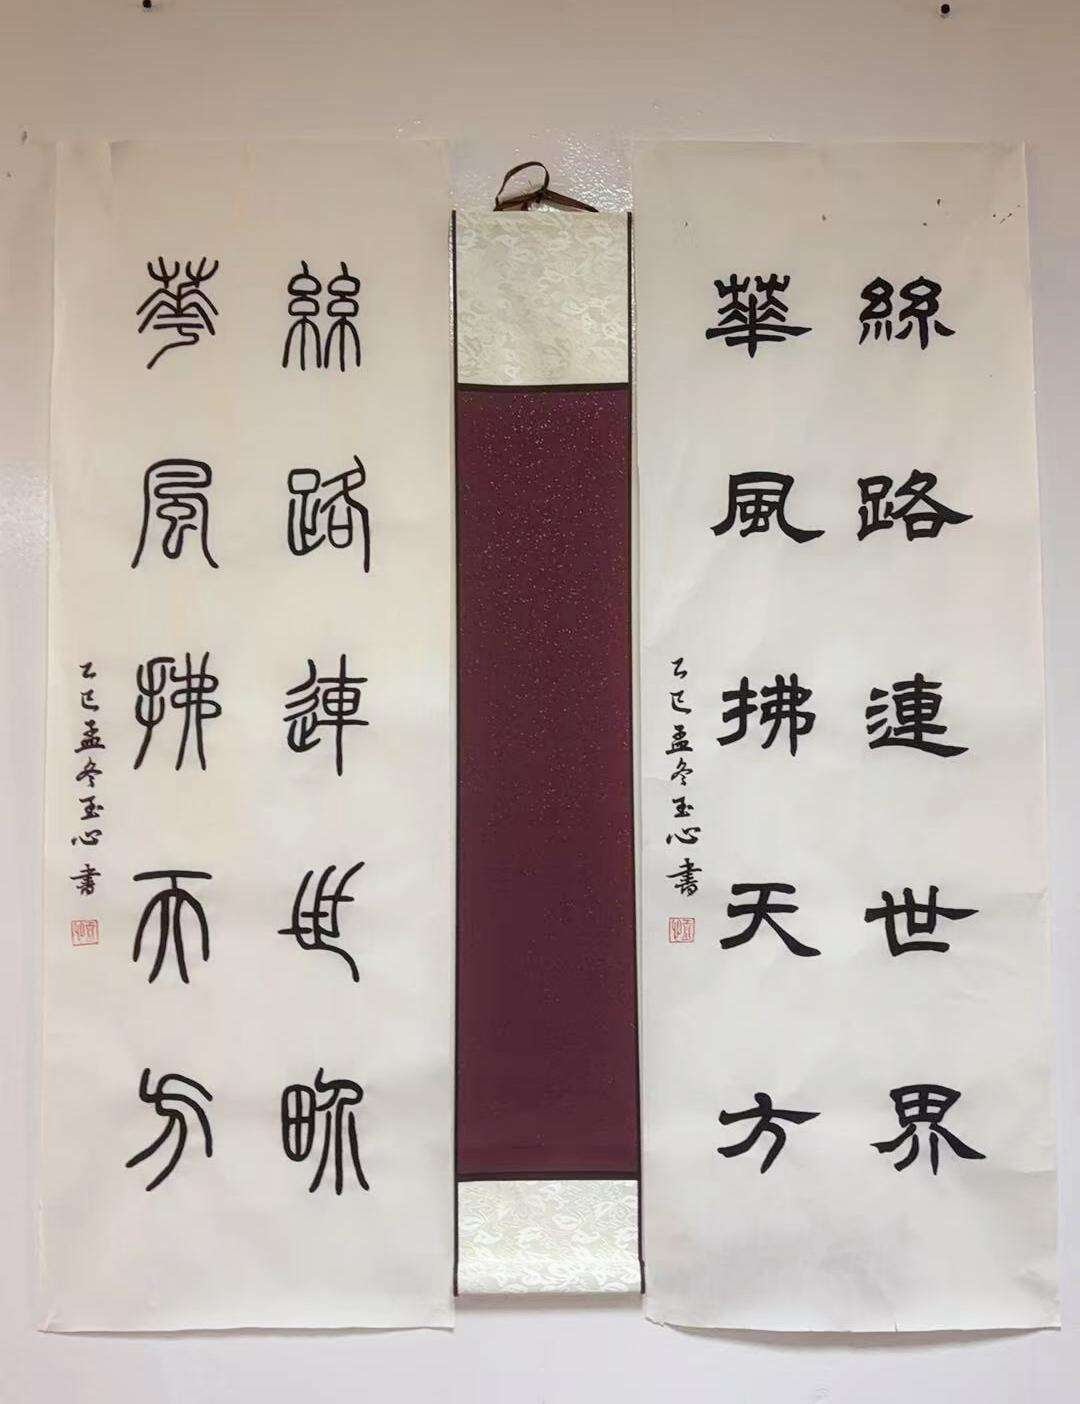 絲路連世界
華風拂天方
乙巳孟冬玉心書
絲路連世界
華風拂天方
乙巳孟冬玉心書